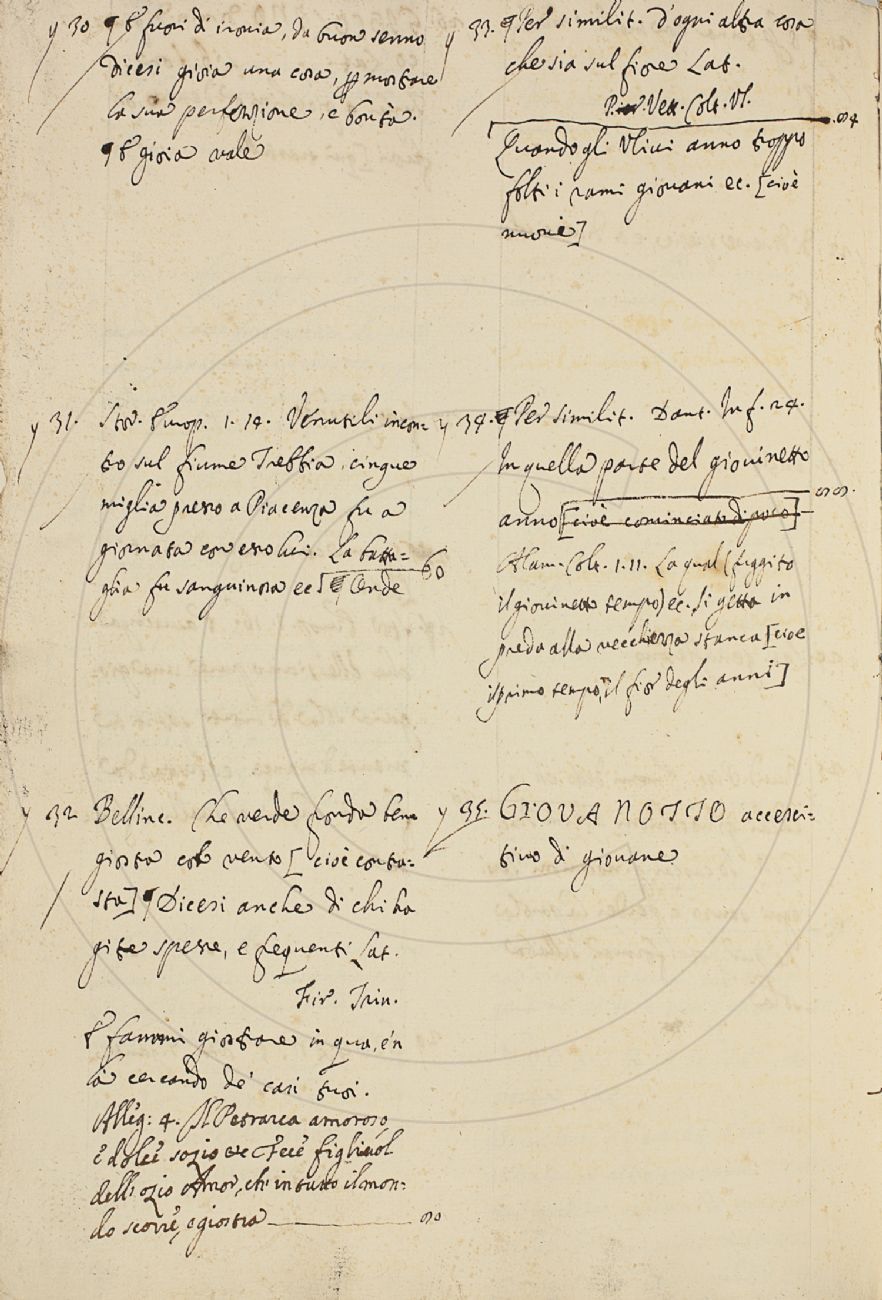 y 30 ¶ E fuori di ironia, da buon senno
dicesi gioia una cosa, p mostrare
la sua perfezzione, e bontà.
¶ E gioia vale
y 31. Stor. Europ. 1. 14. Venutili incon=
tro sul fiume Trebbia, cinque
miglia presso a Piacenza fu a
giornata con esso lui. La batta=
glia fu sanguinosa ec[ ¶ Onde 60
y 32 Bellinc. Che verde fronda ben
giostra col vento [cioè contra=
sta] ¶ Dicesi anche di chi ha
gite spesse, e frequenti Lat.
Fir. Trin.
E fammi giostrare in qua, e 'n
là cercando de' casi tuoi.
Alleg: 4. Il Petrarca amoroso,
e dolce sozio ec Fece figliuol
dell' ozio Amor, ch' in tutto il mon=
do scorre, e giostra
y 33. ¶ Per similit. d'ogni altra cosa
che sia sul fiore Lat.
Pier Vett. Colt. Vl.
Quando gli Vlivi anno troppo
folti i rami giovani ec. [cioè
nuovi]
y 34. ¶ Per similit. Dant. Inf. 24.
In quella parte del giovinetto
anno [cioè cominciato di poco]
Alam. Colt. 1. 11. La qual (fuggito
il giovinetto tempo) ec. si getta in
preda alla vecchiezza stanca [cioè
il primo tempo, il fior degli anni]
y 35. GIOVANOTTO accresci=
tivo di giovane